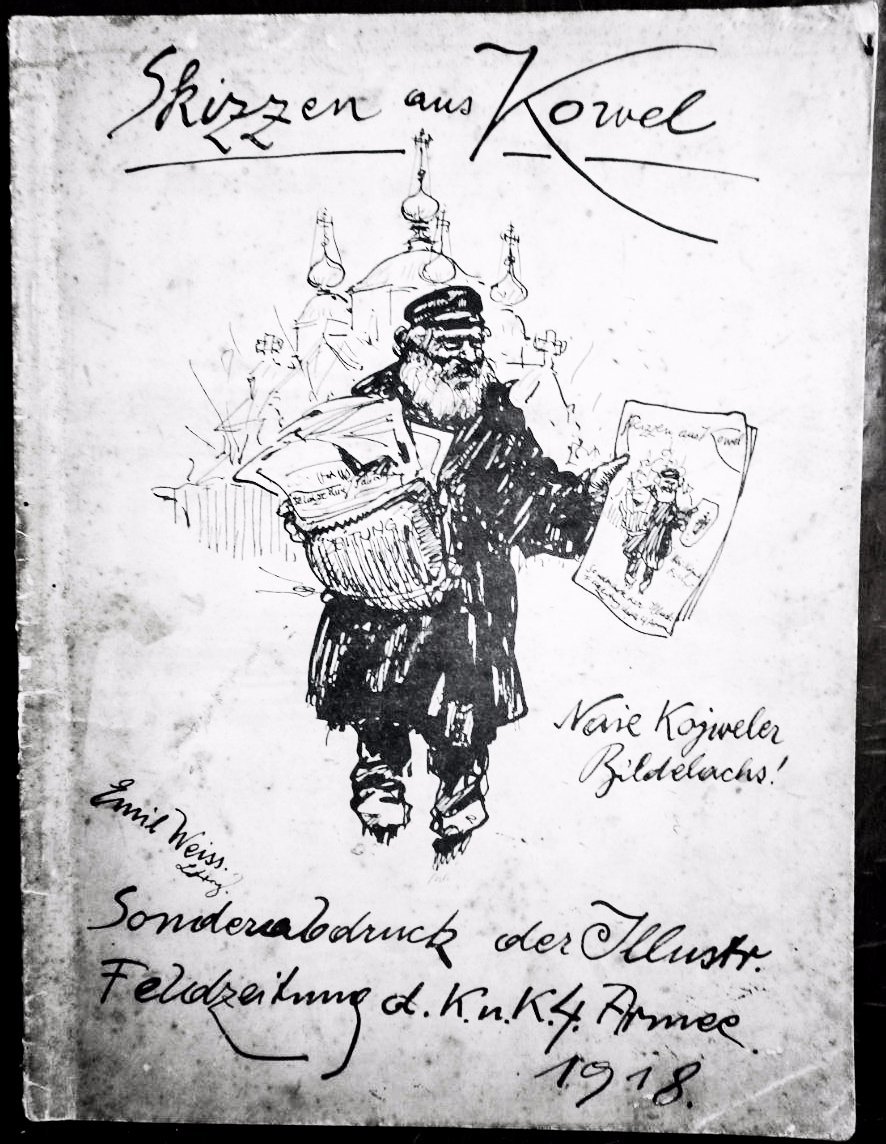 Skizzen aus Kowel
ZEITUNG
Skizzen aus Kowel
Naie Kojweler
Bildelachs!
Emil Weiss.
Sonderabdruck der Illustr.
Feldzeitung d. K. u. K. 4. Armee
1918.